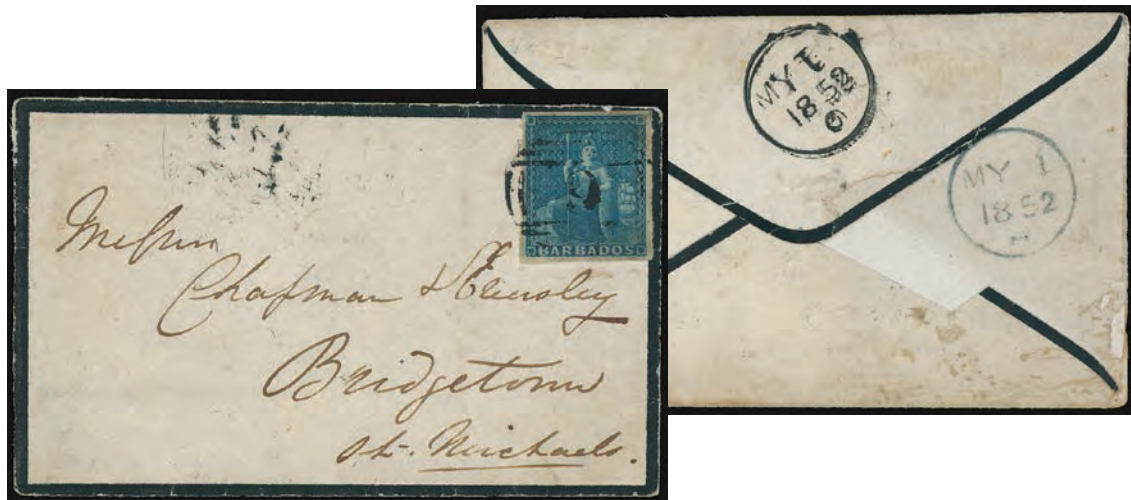 Messrs
Chapman &
Bridgetown
St. Michaels.
9
BARBADOS
MY 1
1852
MY 1
1852